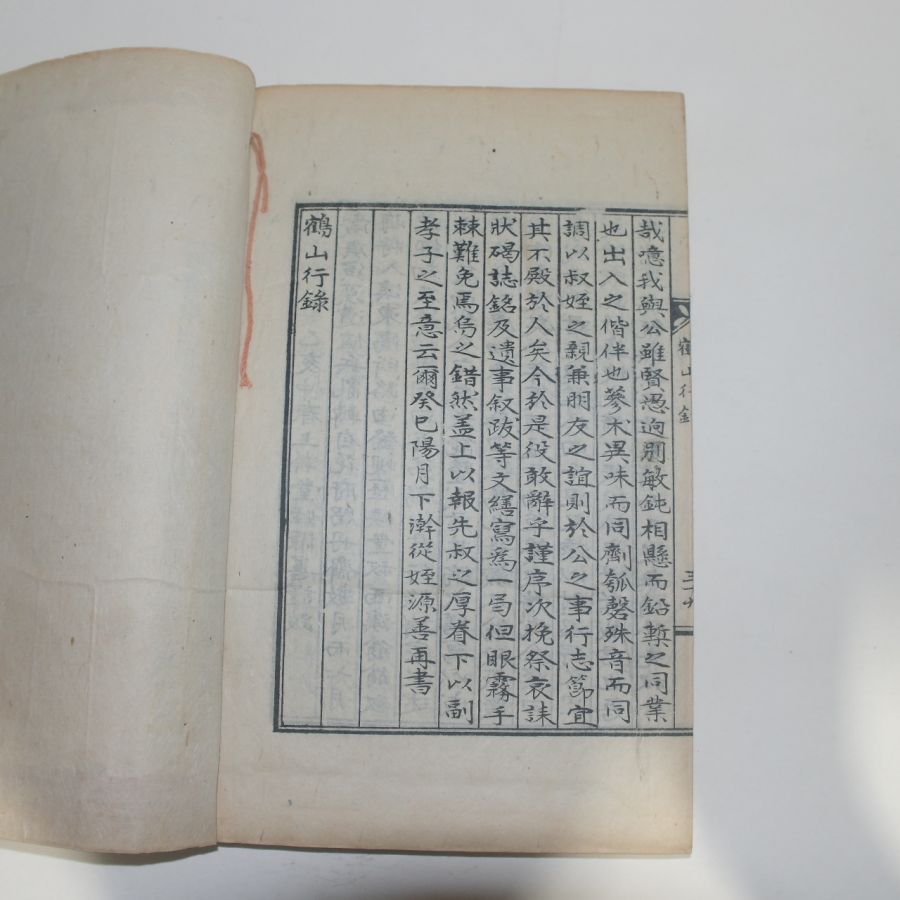 鶴山行錄
哉噫我與公雖賢愚逈別敏鈍相懸而鉛槧之同業
也出入之偕伴也蔘朮異味而同劑瓠磬殊音而同
調以叔姪之親兼朋友之誼則於公之事行志節宜
其不殿於人矣今於是役敢辭乎謹序次挽祭哀誄
狀碣誌銘及遺事叙跋等文繕寫爲一局但眼霧手
棘難免焉烏之錯然盖上以報先叔之厚眷下以副
孝子之至意云爾癸巳陽月下澣從姪源善再書
鶴山行錄